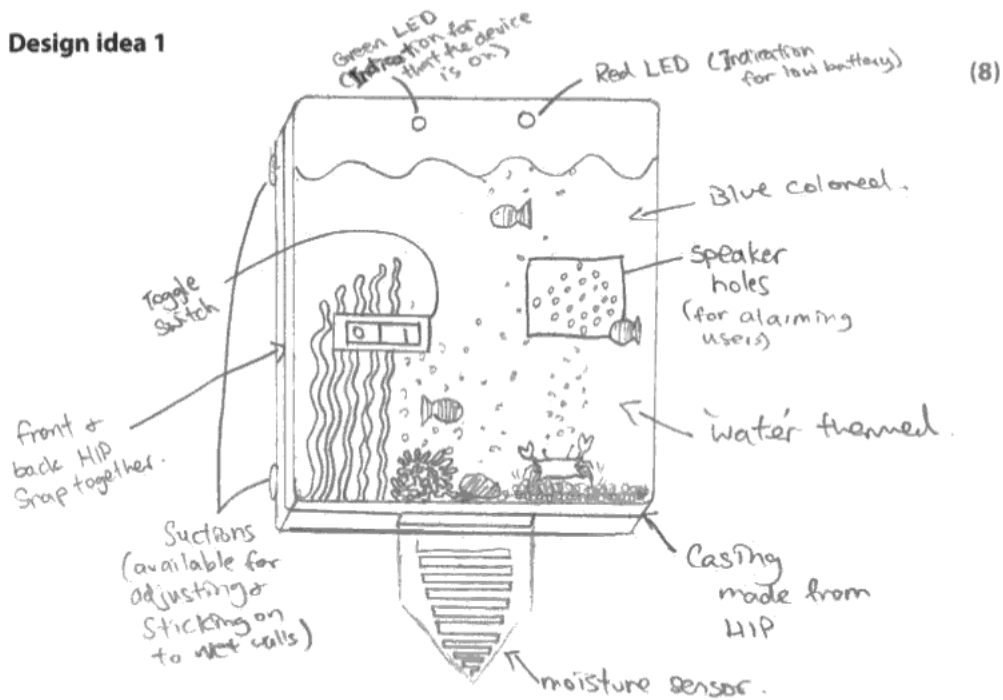 Design idea 1
Green LED
(Indication for
that the device
is on)
Red LED (Indication
for low battery)
(8)
Blue colored.
Speaker
holes
(for alarming
users)
Toggle
switch
front &
back HIP
Snap together.
'water' themed.
Suctions
(available for
adjusting &
sticking on
to wet walls)
Casing
made from
HIP
moisture sensor.